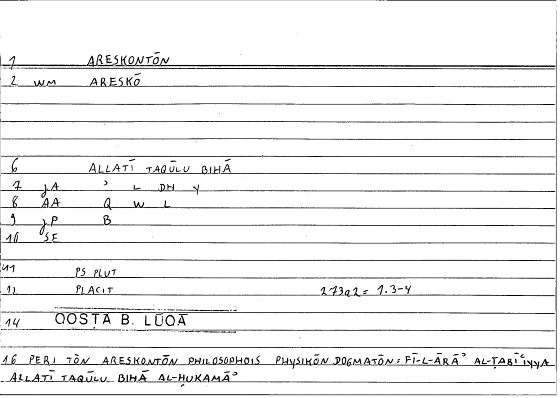 1 ARESKONTŌN
2 WM ARESKŌ
6 ALLATĪ TAQŪLU BIHĀ
7 jA ʾ L DH Y
8 AA Q W L
9 jP B
10 SE
11 PS PLUT
12 PLACIT 273a2 = 1.3-4
14 QOSṬĀ B. LŪQĀ
16 PERI TŌN ARESKONTŌN PHILOSOPHOIS PHYSIKŌN DOGMATŌN = FĪ-L-ĀRĀʾ AL-ṬABĪʿIYYA
ALLATĪ TAQŪLU BIHĀ AL-ḤUKAMĀʾ